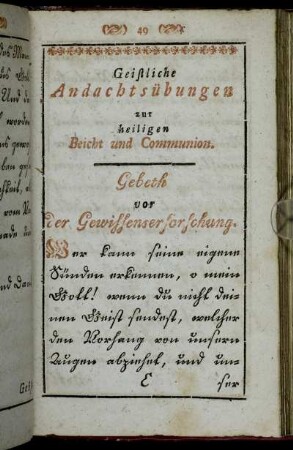 49
Geistliche
Andachtsübungen
zur
heiligen
Beicht und Communion.
Gebeth
vor
der Gewissenserforschung.
Wer kann seine eigene
Sünden erkennen, o mein
Gott! wenn du nicht dei-
nen Geist sendest, welcher
den Vorhang von unsern
Augen abziehet, und un-
C ser